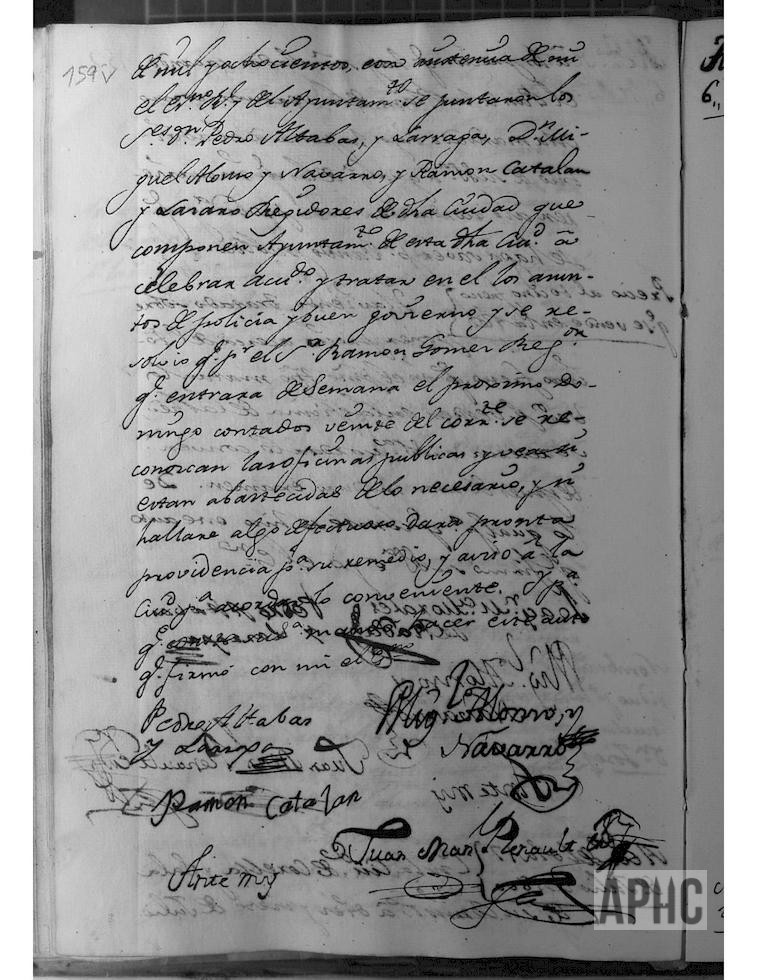 159v
de mil y ochocientos, con asistencia de mi
el Essno. Rl. y del Ayuntamto. se juntaron los
Ses. Dn. Pedro Altabas, y Larraga, Dn. Mi-
guel Alonso y Navarro, y Ramon Catalan
y Lazaro Regidores de dha Ciudad que
componen Ayuntamto. de esta dha Ciud. a
celebrar acudo. y tratar en el los asun-
tos de policia y buen govierno y se re-
solvio qe. pr. el Sr. Ramon Gomez Regor.
qe. entrara de Semana el proximo Do-
mingo contados veinte del corrte. se re-
conozcan las oficinas publicas y vea si
estan abastecidas de lo necesario, y si
hallare algo defectuoso dara pronta
providencia pa. su remedio, y aviso a la
Ciud. pa. acordar lo conveniente. y pa.
qe. conste mando hacer este auto
qe. firmó con mi el Essno.
Pedro Altabas
y Larraga
Miguel Alonso, y
Navarro
Ramon Catalan
Ante my
Juan Man. Perault
APHC